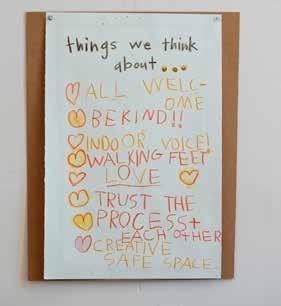 things we think
about...
ALL WELC-
OME
BE KIND!!
INDOOR VOICE!
WALKING FEET
LOVE
TRUST THE
PROCESS+
EACH OTHER
CREATIVE
SAFE SPACE